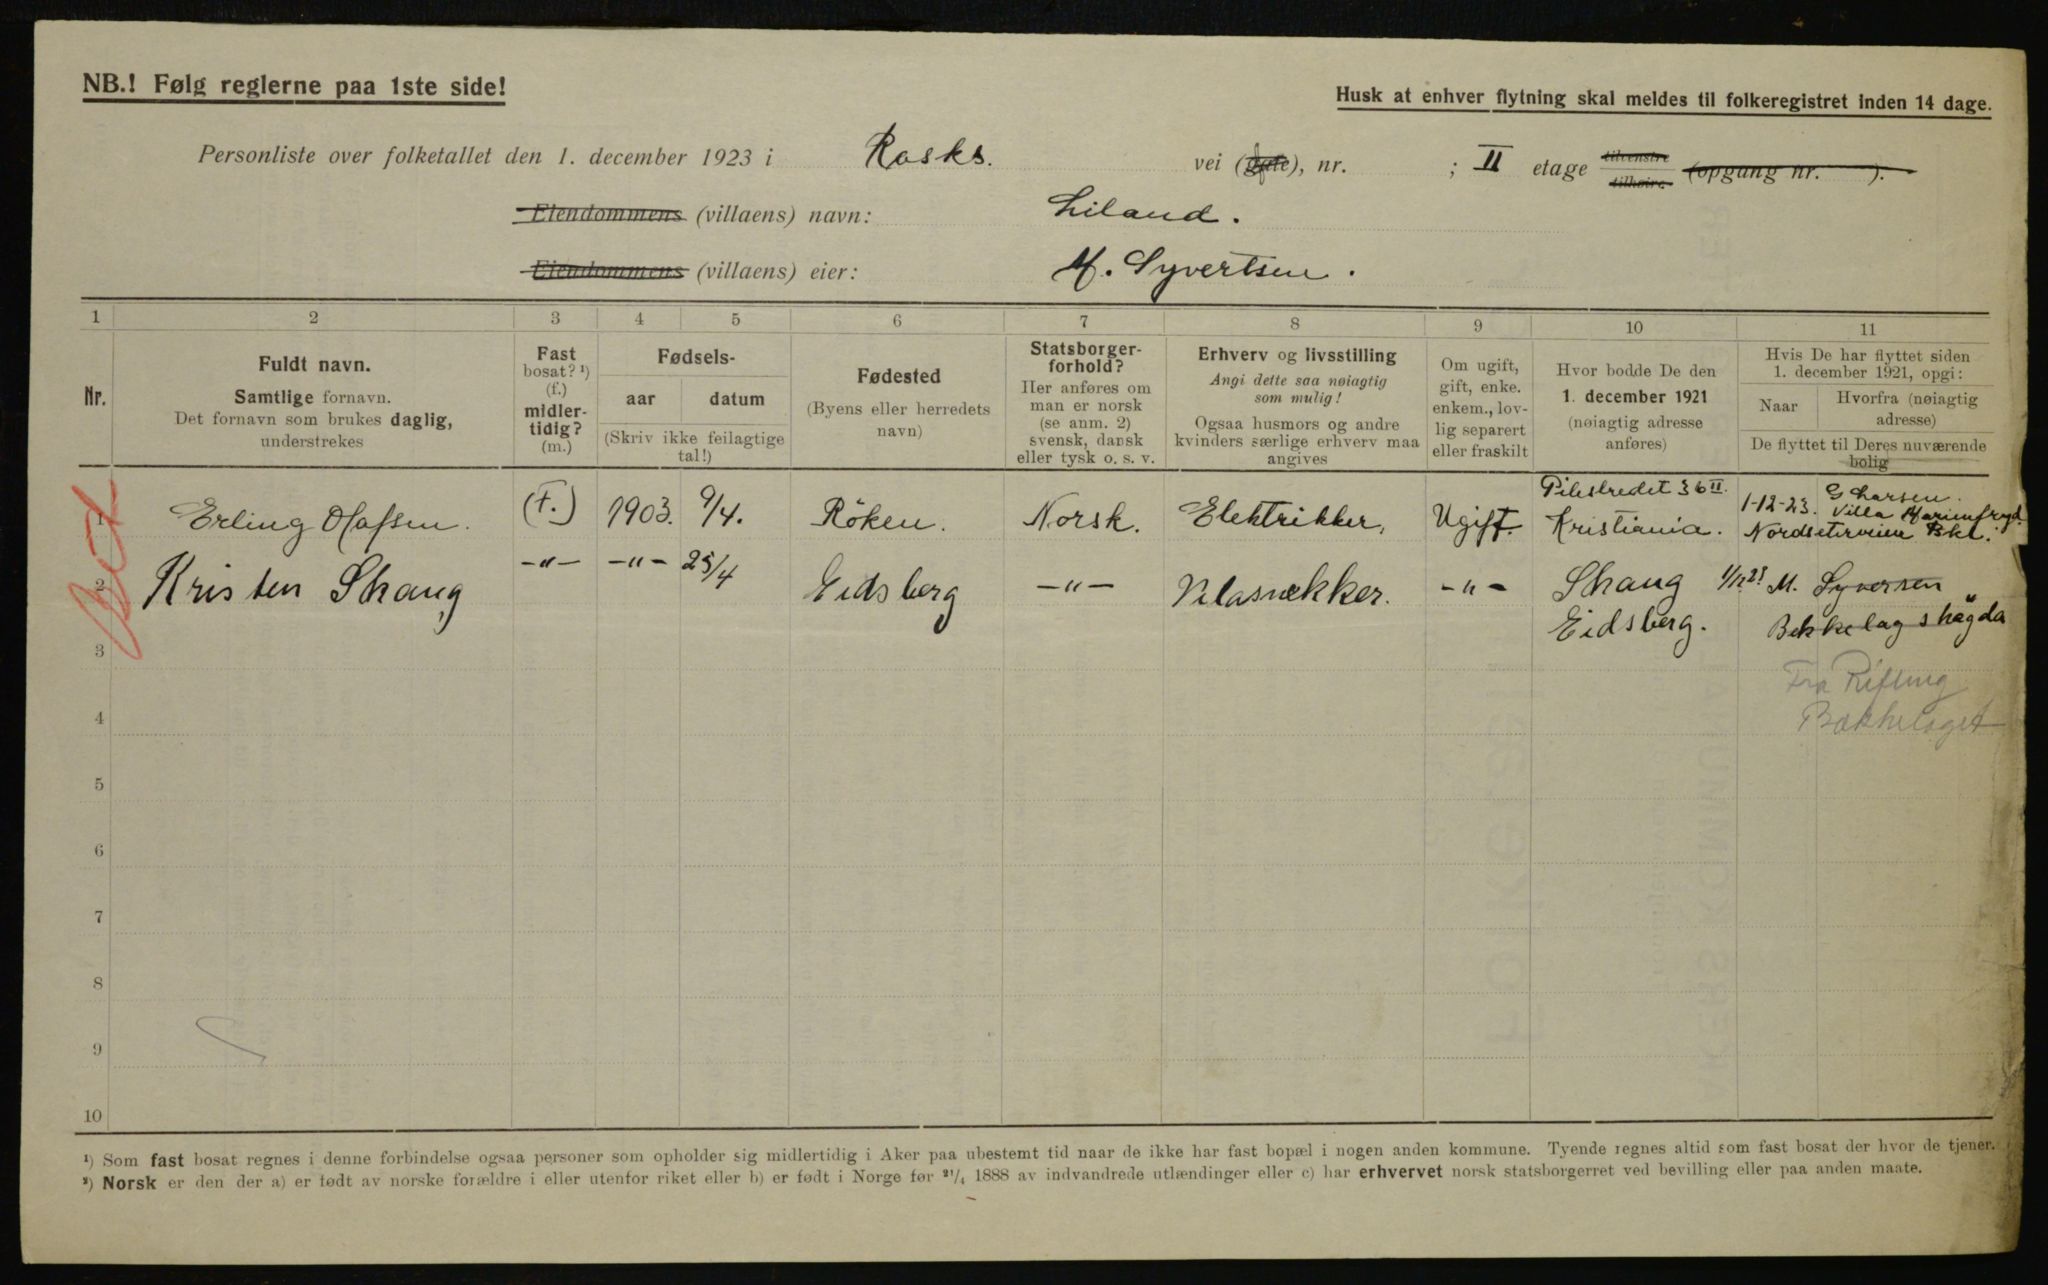 NB.! Følg reglerne paa 1ste side!
Husk at enhver flytning skal meldes til folkeregistret inden 14 dage.
Personliste over folketallet den 1. december 1923 i Rasks. vei (gate), nr. ; II etage tilvenstre tilhøire (opgang nr. ).
Eiendommens (villaens) navn: Liland.
Eiendommens (villaens) eier: M. Syvertsen.
1 2 3 4 5 6 7 8 9 10 11
Nr.
Fuldt navn.
Samtlige fornavn.
Det fornavn som brukes daglig,
understrekes
Fast
bosat? ¹)
(f.)
midler-
tidig?
(m.)
Fødsels-
aar datum
(Skriv ikke feilagtige
tal!)
Fødested
(Byens eller herredets
navn)
Statsborger-
forhold?
Her anføres om
man er norsk
(se anm. 2)
svensk, dansk
eller tysk o. s. v.
Erhverv og livsstilling
Angi dette saa nøiagtig
som mulig!
Ogsaa husmors og andre
kvinders særlige erhverv maa
angives
Om ugift,
gift, enke.
enkem., lov-
lig separert
eller fraskilt
Hvor bodde De den
1. december 1921
(nøiagtig adresse
anføres)
Hvis De har flyttet siden
1. december 1921, opgi:
Naar
Hvorfra (nøiagtig
adresse)
De flyttet til Deres nuværende
bolig
1 Erling Olafsen. (F.) 1903. 9/4. Röken. Norsk. Elektrikker, Ugift. Pilestredet 36 II. Kristiania. 1-12-23. G Larsen. Villa Marienfryd Nordseterveien Bkl.
2 Kristen Skaug -"- -"- 25/4 Eidsberg -"- -"- Skaug Eidsberg. M. Syversen Bekkelagshøgda
Fra
Bækkelaget
3
4
5
6
7
8
9
10
¹) Som fast bosat regnes i denne forbindelse ogsaa personer som opholder sig midlertidig i Aker paa ubestemt tid naar de ikke har fast bopæl i nogen anden kommune. Tyende regnes altid som fast bosat der hvor de tjener.
²) Norsk er den der a) er født av norske forældre i eller utenfor riket eller b) er født i Norge før ²¹/₄ 1888 av indvandrede utlændinger eller c) har erhvervet norsk statsborgerret ved bevilling eller paa anden maate.